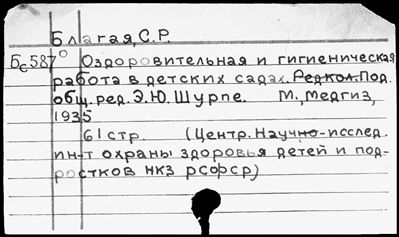 Благая, С.Р.
Бс587° Оздоровительная и гигиеническая
работа в детских садах. Редкол. Под
общ. ред. Э.Ю. Шурпе. М., Медгиз,
1935
61 стр. (Центр. Научно-исслед.
ин-т охраны здоровья детей и под-
ростков НКЗ РСФСР)